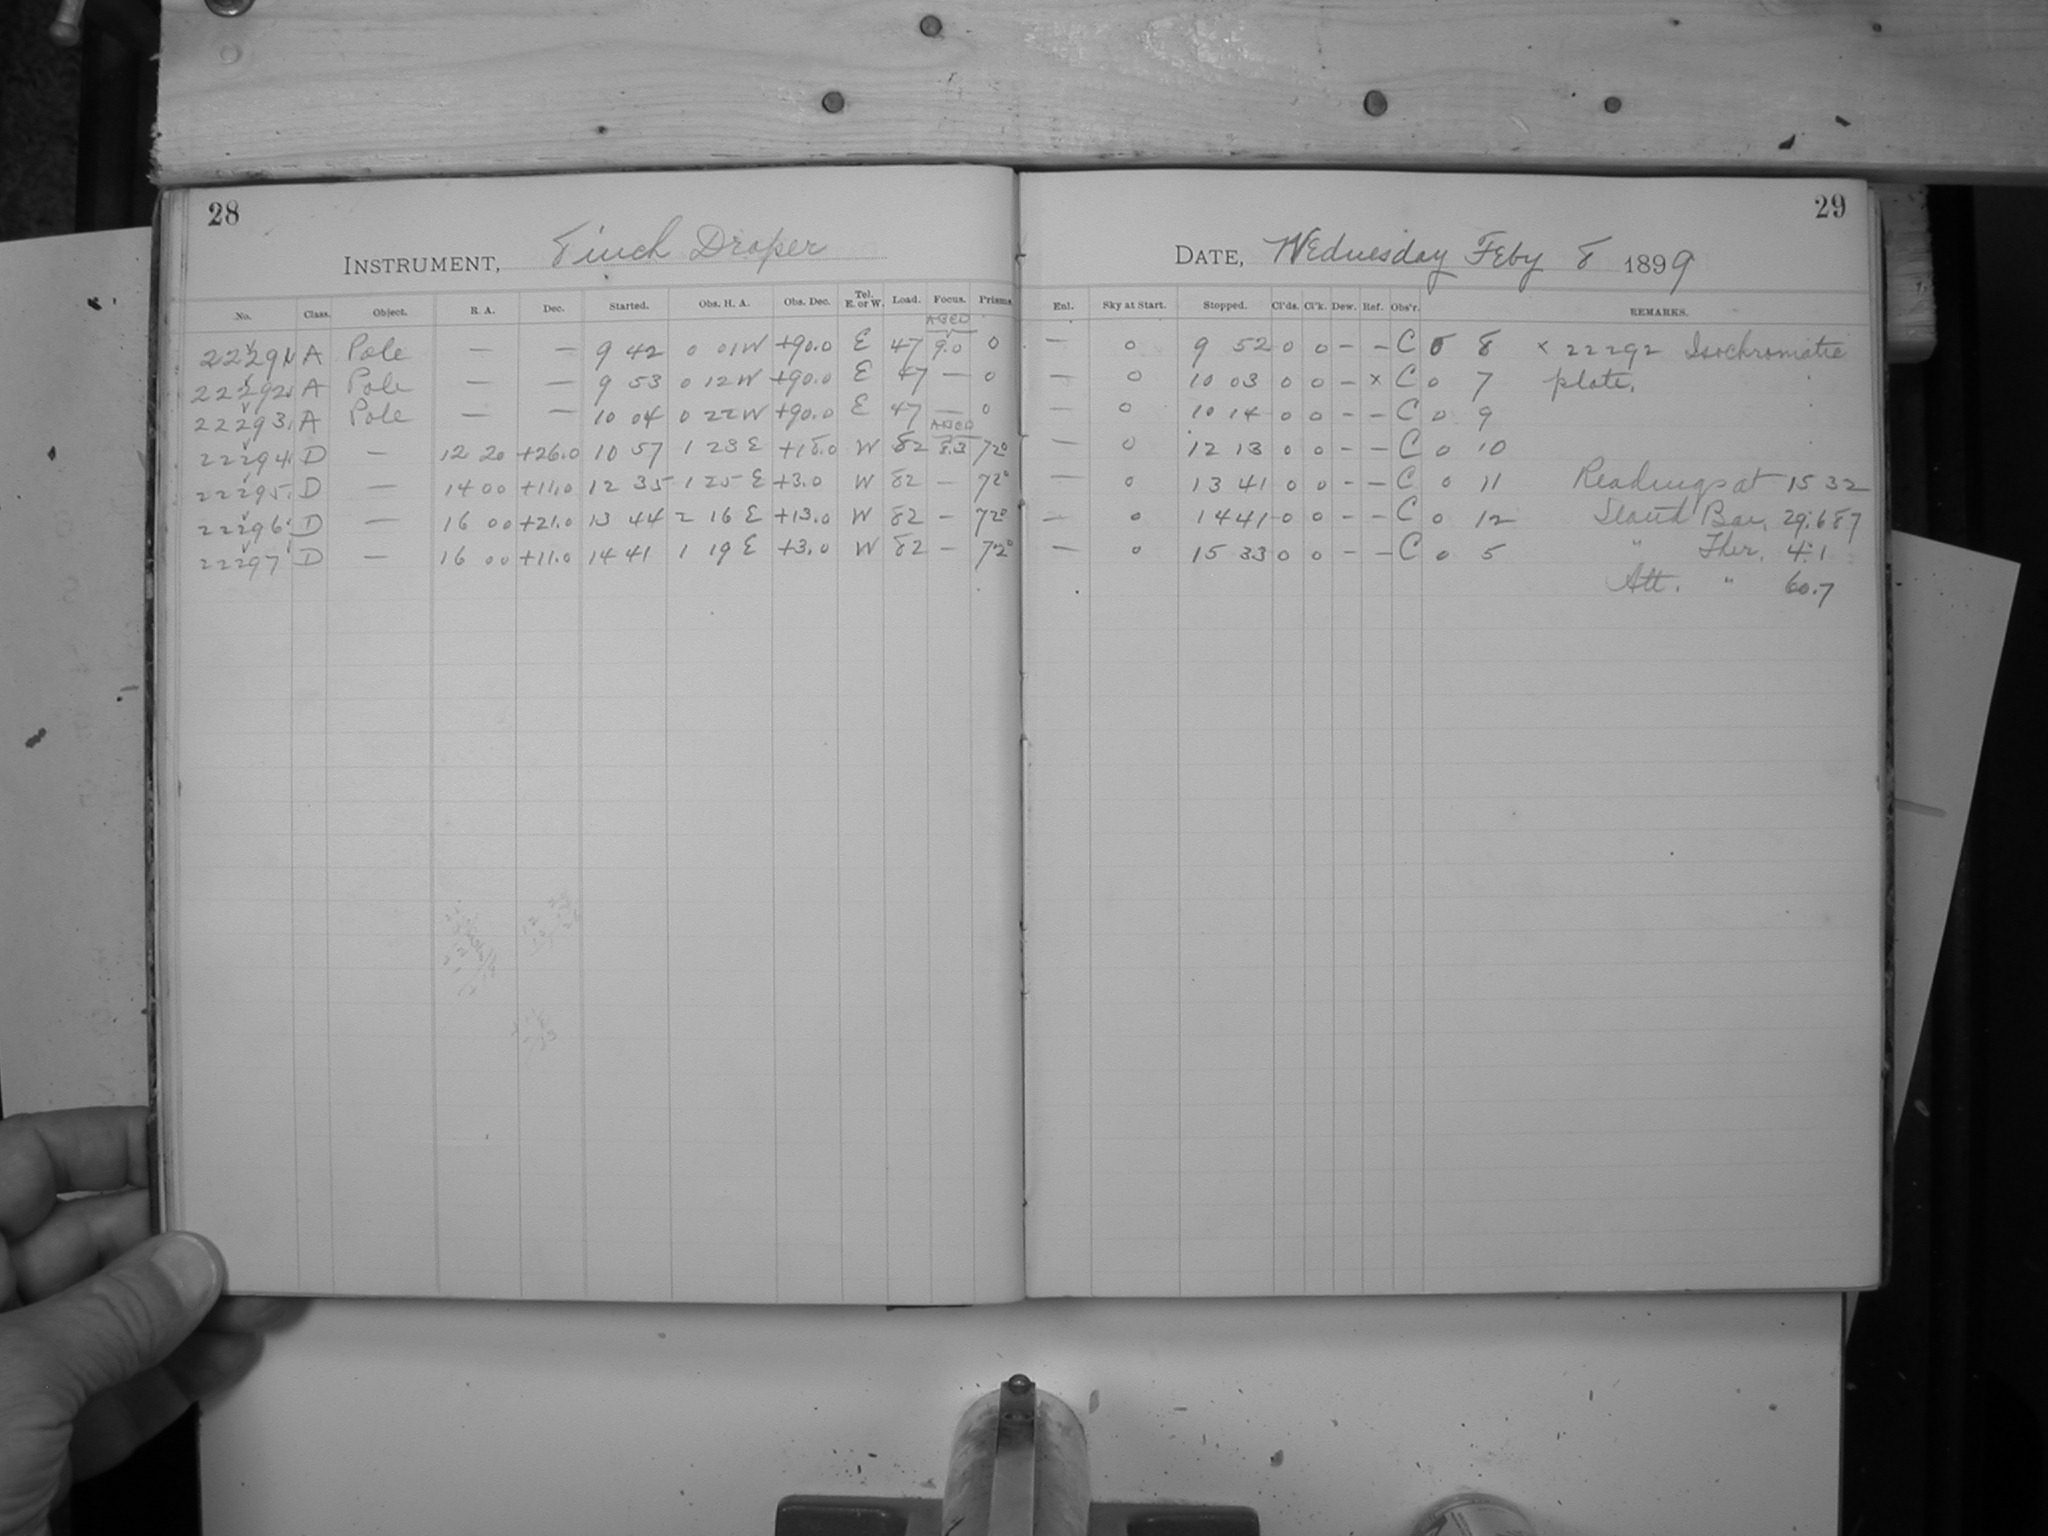 28
INSTRUMENT, 8 inch Draper
No. Class. Object. R. A. Dec. Started. Obs. H. A. Obs. Dec. Tel. E. or W. Load. Focus. Prisms.
ABCD
22291 A Pole — — 9 42 0 01 W +90.0 E 47 9.0 0
22292 A Pole — — 9 53 0 12 W +90.0 E 47 — 0
22293 A Pole — — 10 04 0 22 W +90.0 E 47 — 0
ABCD
22294 D — 12 20 +26.0 10 57 1 23 E +18.0 W 82 8.3 72°
22295 D — 14 00 +11.0 12 35 1 25 E +3.0 W 82 — 72°
22296 D — 16 00 +21.0 13 44 2 16 E +13.0 W 82 — 72°
22297 D — 16 00 +11.0 14 41 1 19 E +3.0 W 82 — 72°
29
DATE, Wednesday Feby 8 1899
Enl. Sky at Start. Stopped. Cl'ds. Cl'k. Dew. Ref. Obs'r. REMARKS.
— 0 9 52 0 0 – – C 0 8 x 22292 Isochromatic
— 0 10 03 0 0 – x C 0 7 plate.
— 0 10 14 0 0 – – C 0 9
— 0 12 13 0 0 – – C 0 10
— 0 13 41 0 0 – – C 0 11 Readings at 15 32
— 0 14 41 0 0 – – C 0 12 Stand Bar. 29.687
— 0 15 33 0 0 – – C 0 5 " Ther. 4.1
Att. " 60.7